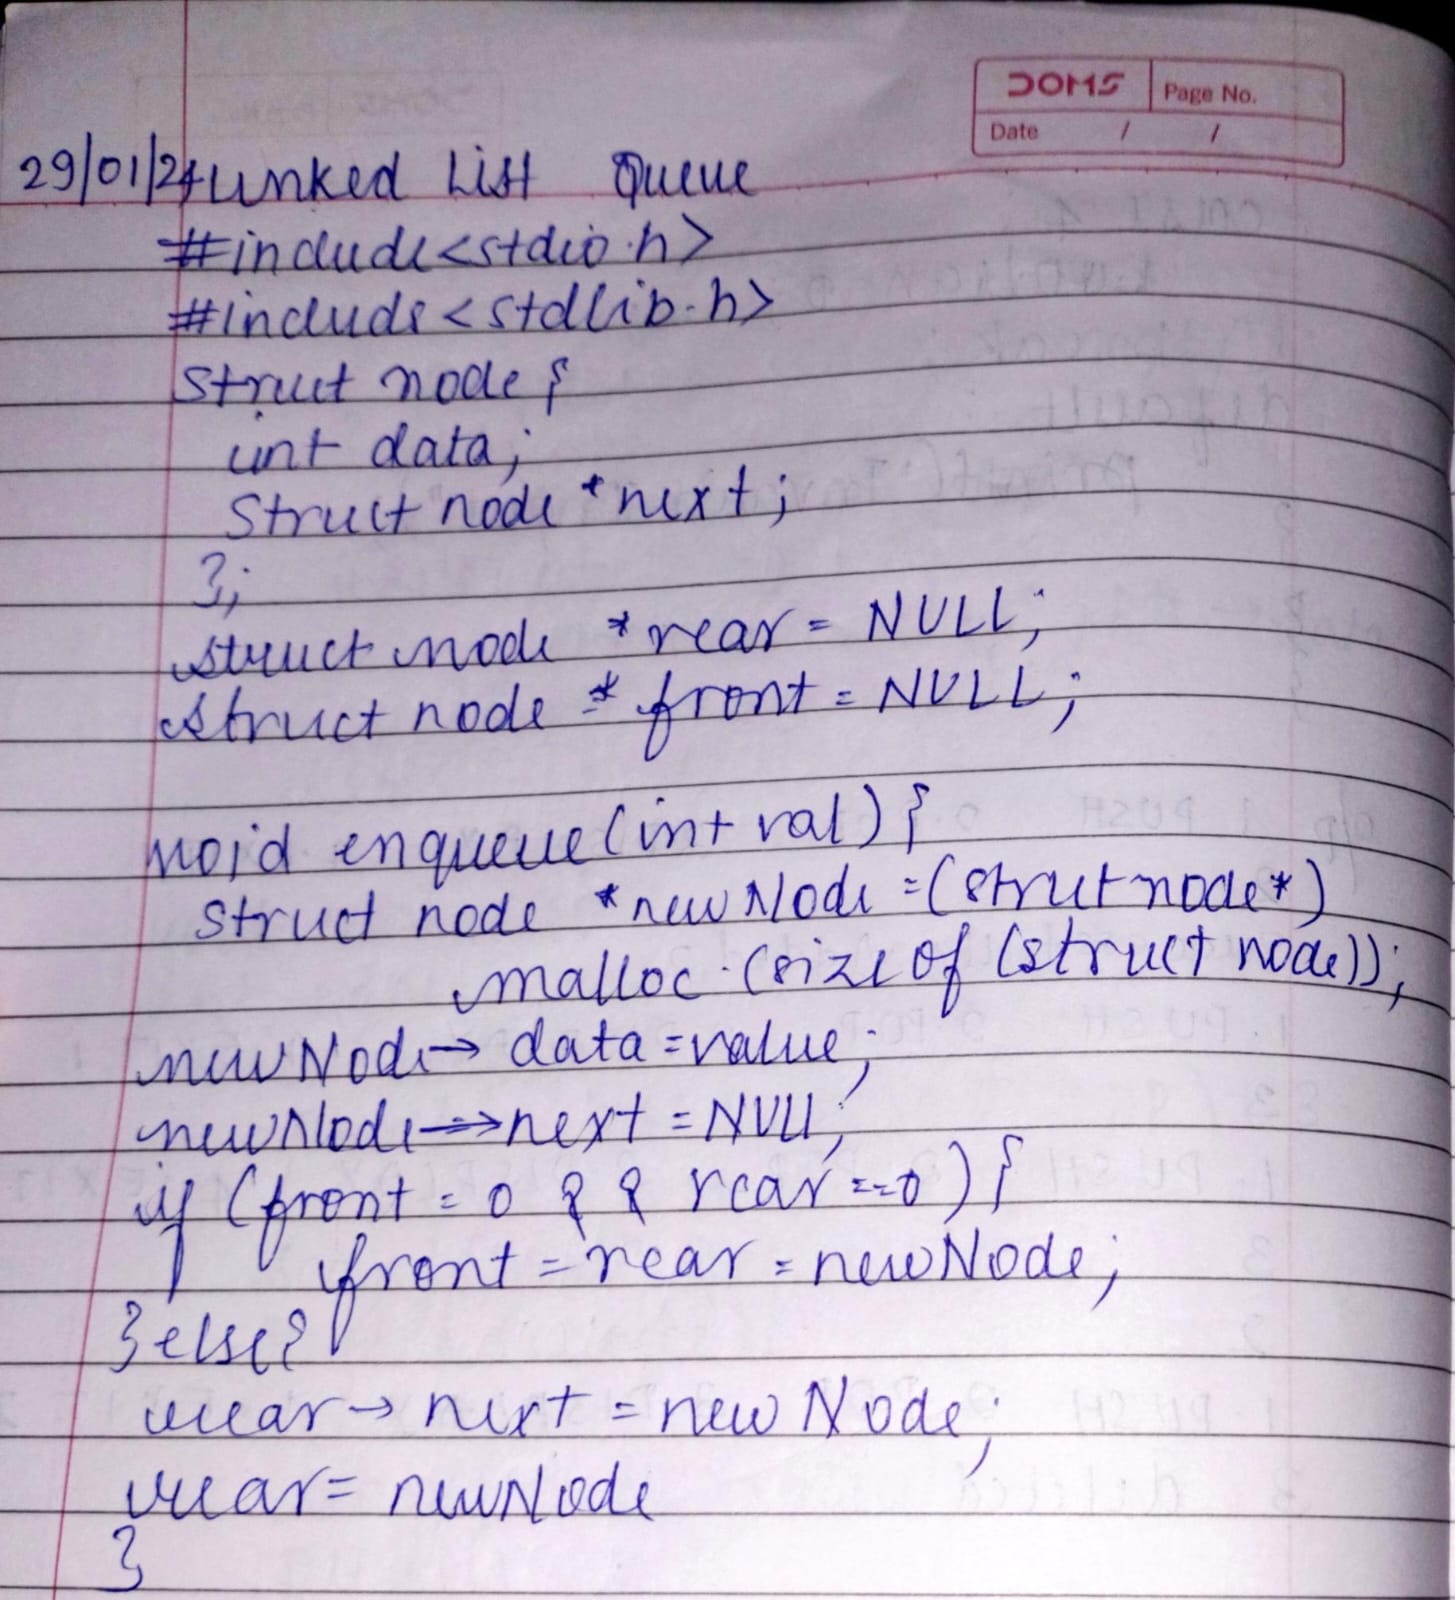 DOMS Page No.
Date / /
29/01/24 Linked List Queue
#include<stdio.h>
#include<stdlib.h>
struct node {
int data;
struct node *next;
};
struct node *rear = NULL;
struct node * front = NULL;
void enqueue(int val) {
struct node *newNode =(strutnode*)
malloc.(size of (struct node));
newNode→ data =value;
newNode→next = NULL;
if (front = 0 && rear ==0) {
front = rear = newNode;
}else{
rear→ next = new Node;
rear= newNode
}